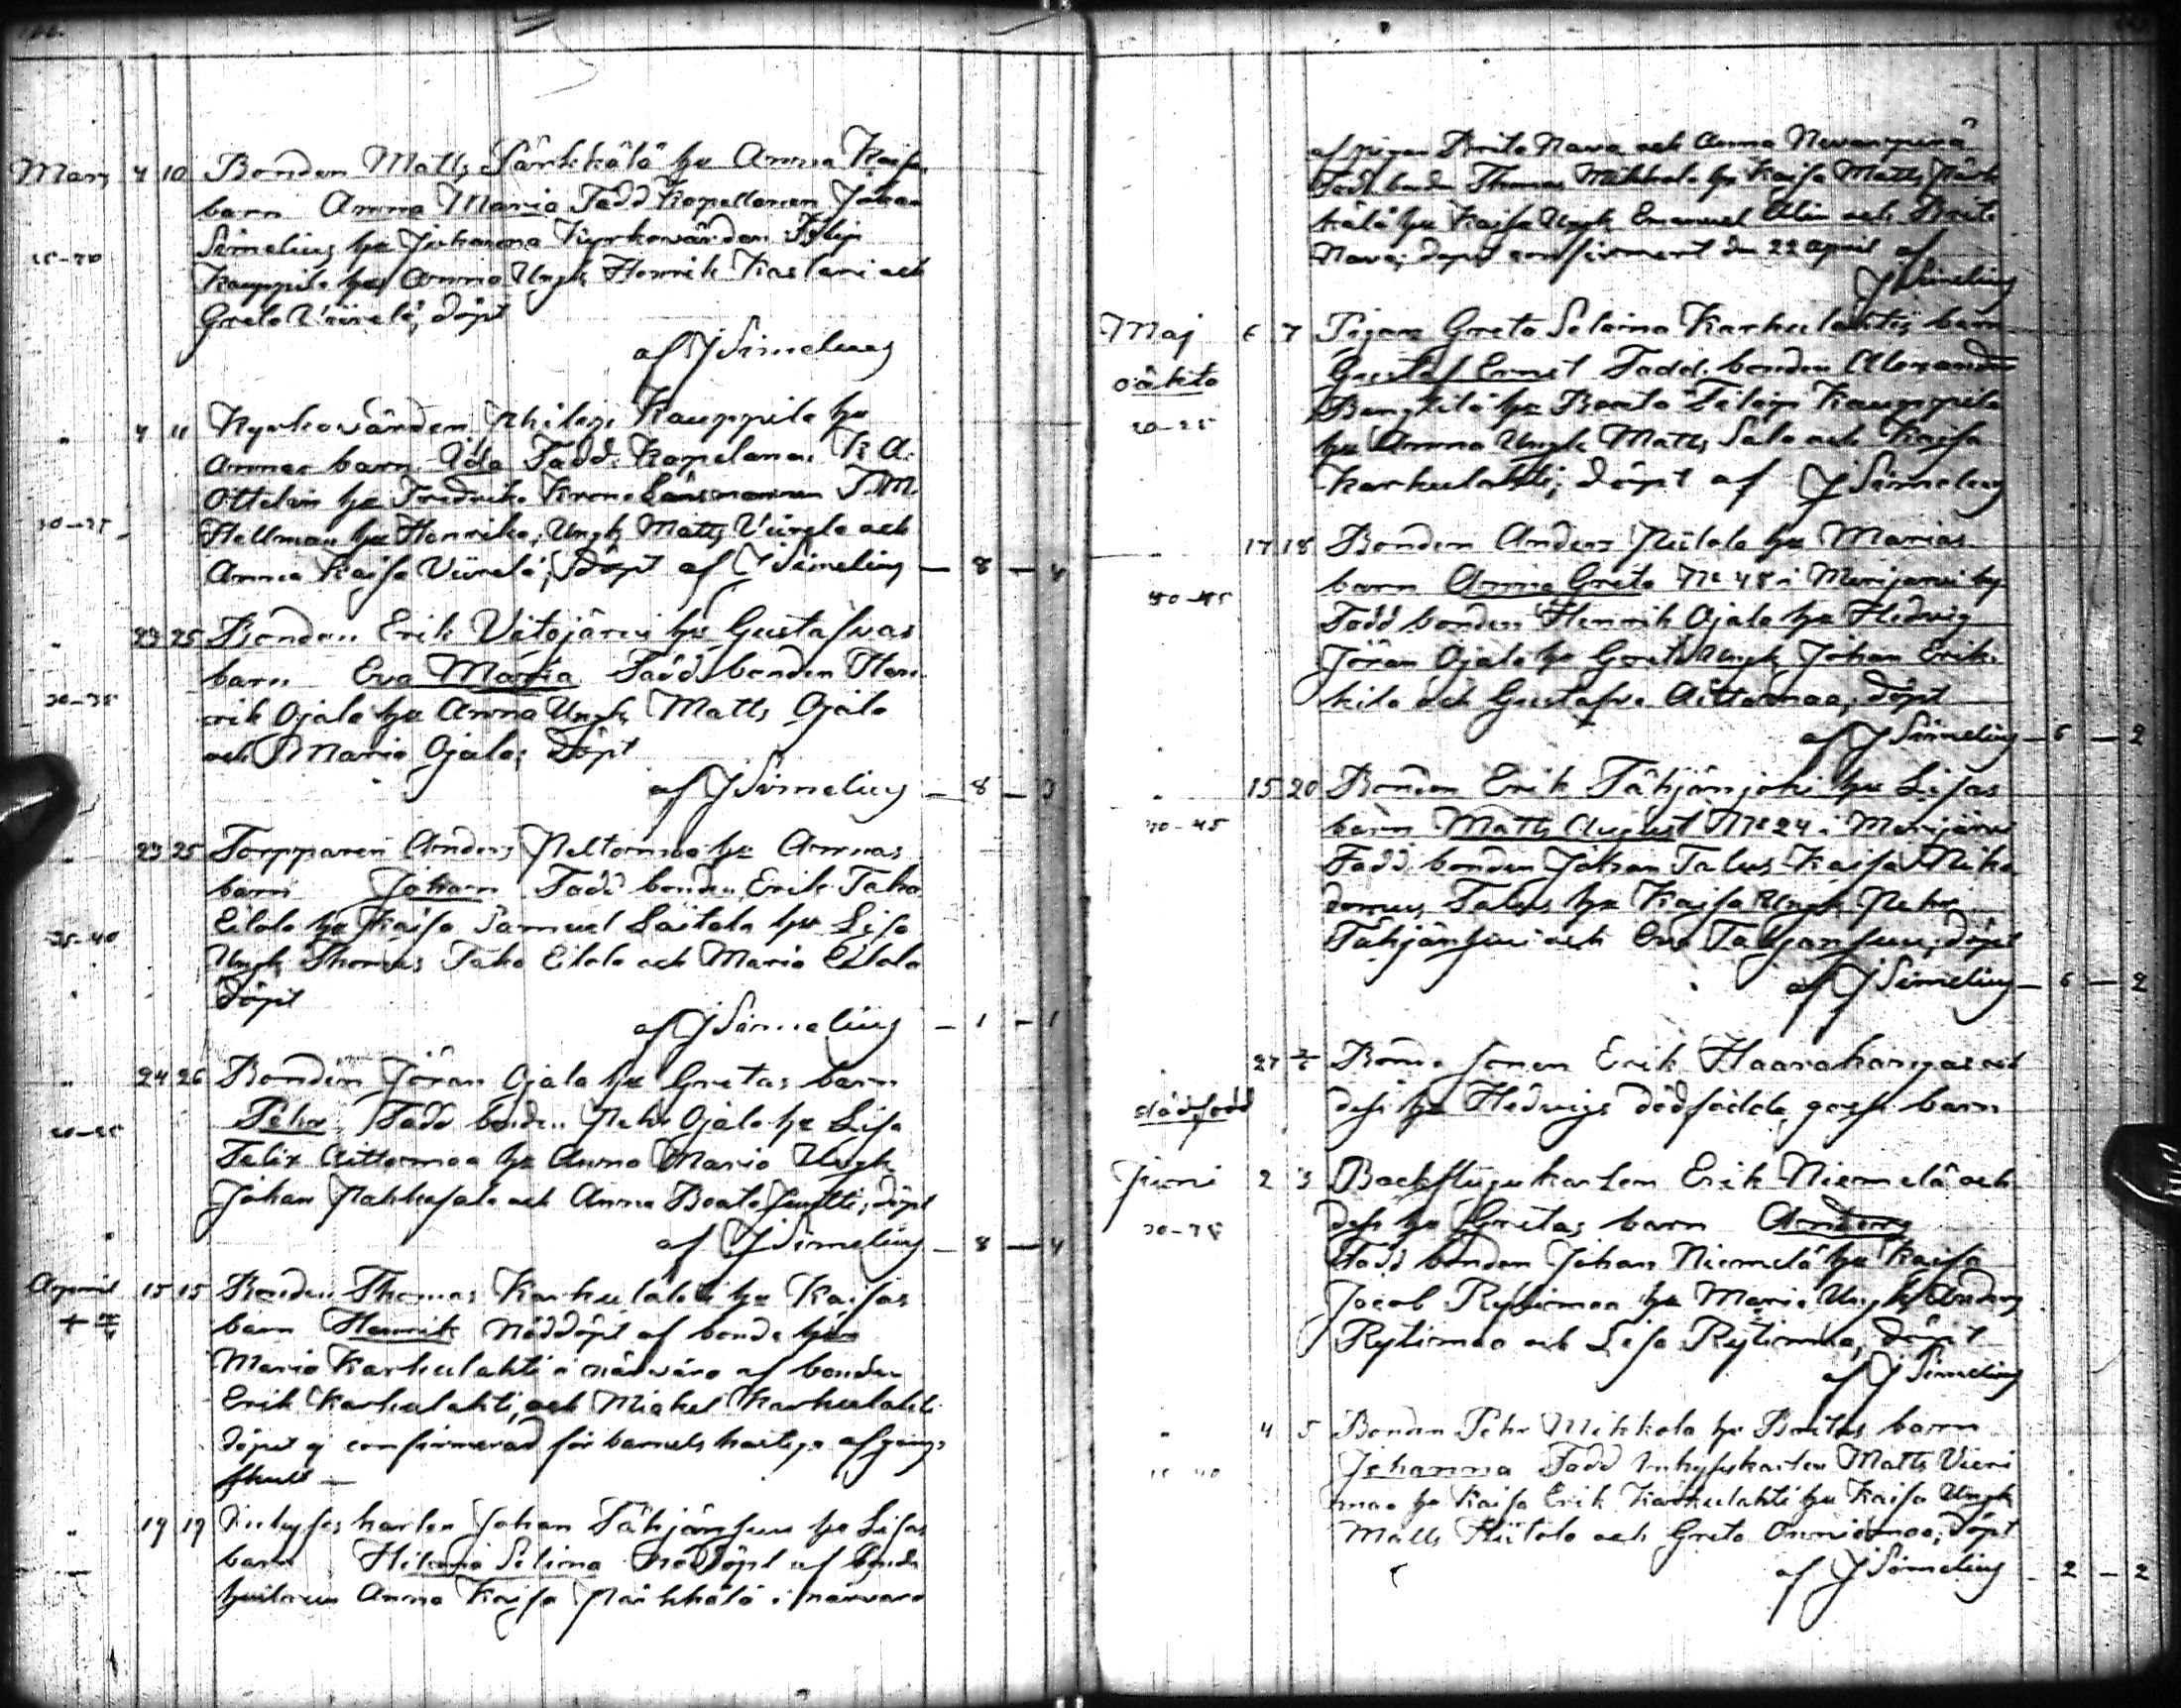 Mars 4 10 Bonden Matts Pärkkälä hu Anna Kaisas
barn Anna Maria Fadd Kapellanen Johan
Simelius hu Johanna Kyrkovärden Filip
25-30
Kauppila hu Anna Ungk Henrik Kaslari och
Greta Viirelä, döpt
af J Simelius
" 4 11 Kyrkovärden Philip Kauppila hu
Annas barn Ida Fadd. Kapelanen K A.
Ottelin hu Fredrika Krono Länsmannen J. M.
30-35
Hellman hu Henrika, Ungk Matts Viirela och
Anna Kaisa Viirelä, döpt af J Simelius — 8 — 4
" 23 25 Bonden Erik Vitajärvi hu Gustafvas
barn Eva Maria Fadd bonden Hen
30-35
rik Ojala hu Anna Ungk Matts Ojala
och Maria Ojala; döpt
af J Simelius — 8 — 3
" 23 25 Torpparen Anders Peltomaa hu Annas
barn Johan Fadd bonden Erik Taka
35-40
Eilola hu Kaisa Samuel Laitala hu Lisa
Ungk Thomas Taka Eilola och Maria Eilola
döpt
af J Simelius — 1 — 1
" 24 26 Bonden Jöran Ojala hu Gretas barn
Pehr Fadd bonden Pehr Ojala hu Lisa
Felix Aittamaa hu Anna Maria Ungk
Johan Pahkasalo och Anna Beata Juntti; döpt
af J Simelius — 8 — 4
April 15 15 Bonden Thomas Karhulahti hu Kaisas
barn Henrik Nöddöpt af bonde hun
Maria Karhulahti i närvaro af bonden
Erik Karhulahti, och Mickel Karhulahti
döpet ej confirmerad för barnets hastiga afgångs
skull —
" 19 19 Inhyses karlen Johan Tähjänsuu hu Lisas
barn Selima Nöddöpt af bonde
hustrun Anna Kaisa Pärkkälä i närvaro
af pigan Brita Nava och Anna Nevanperä
Fadd. bonden Thomas Mikkola hu Kaisa Matts Pärk
kälä hu Kaisa Ungk Emanuel Alin och Brita
Nava; döpet confirmerat den 22 April af
J Simelius
Maj 6 7 Pigan Greta Selaina Karhulahtis barn
oäkta
Gustaf Ernst Fadd. bonden Alexander
20-25
Bengtilä hu Beata Filip Kauppila
hu Anna Ungk Matts Salo och Kaisa
Karhulahti; döpt af J Simelius
" 17 18 Bonden Anders Piilola hu Marias
40-45
barn Anna Greta No 48 i Merijärvi by
Fadd bonden Henrik Ojala hu Hedvig
Jöran Ojala hu Greta Ungk Johan Erik
kila och Gustafva Aittamaa, döpt
af J Simelius — 6 — 2
" 15 20 Bonden Erik Tähjänjoki hu Lisas
40-45
barn Matts August No 24 i Merijärvi
Fadd. bonden Johan Talus Kaisa Niko
demus Talus hu Kaisa Ungk Pehr
Tähjänsuu och Eva Tähjänsuu; döpt
af J Simelius — 6 — 2
" 27 Bonde sonen Erik Haarakangas och
dödfödd
dess hu Hedvigs dödfödda gosse barn
Juni 2 3 Backstugukarlen Erik Niemelä och
30-35
dess hu Gretas barn Anders
Fadd bonden Johan Niemelä hu Kaisa
Jacob Rytimaa hu Maria Ungk Anders
Rytimaa och Lisa Rytimaa, döpt
af J Simelius
" 4 5 Bonden Pehr Mikkola hu Britas barn
Johanna Fadd Inhyseskarlen Matts Vieri
maa hu Kaisa Erik Karhulahti hu Kaisa Ungk
Matts Hiitola och Greta Anniomaa; döpt
af J Simelius — 2 — 2